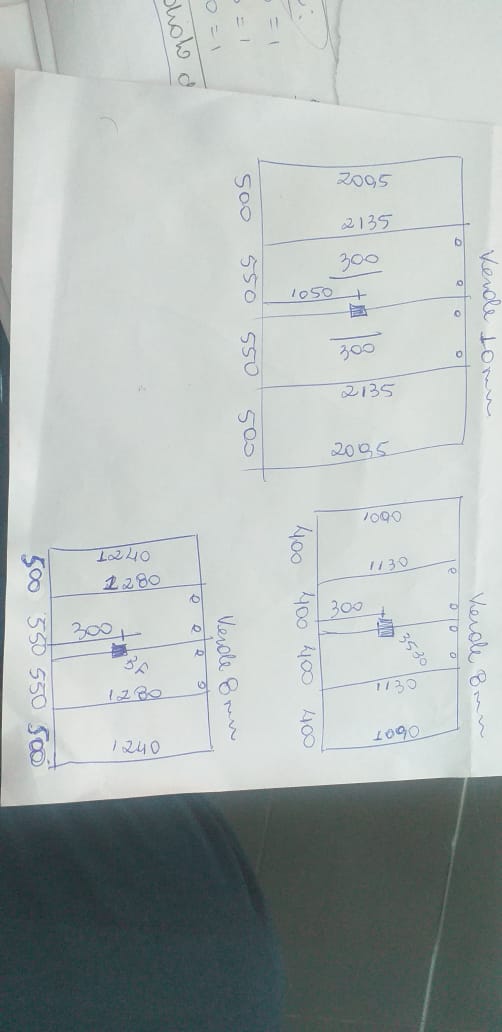 Verde 10mm
2095
2135
300
1050
300
2135
2095
500 550 550 500
Verde 8mm
1090
1130
300
3530
1130
1090
400 400 400 400
Verde 8mm
1240
1280
300
1280
1240
500 550 550 500
= 1
= 1
= 1